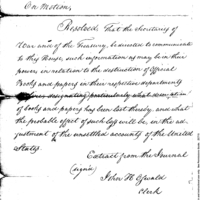 On Motion,
Resolved That the Secretary of
War and of the Treasury, be directed to communicate
to this House, such information as may be in their
powers in relation to the destruction of Official
Books and papers in their respective departments
designating particularly what
of books and papers has been lost thereby, and what
the probable effect of such loss will be, in the ad-
justment of the unsettled accounts of the United
States.
Extract from the Journal
(signed)
John H Oswald
Clerk